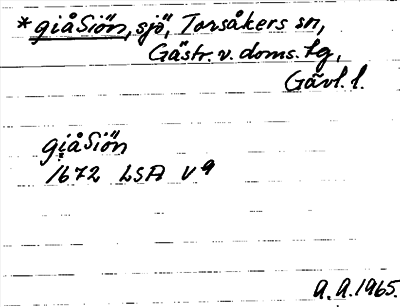 *giåSiön, sjö, Torsåkers sn,
Gästr. v. doms. tg,
Gävl. l.
giåSiön
1672 LSA V9
A.A. 1965.